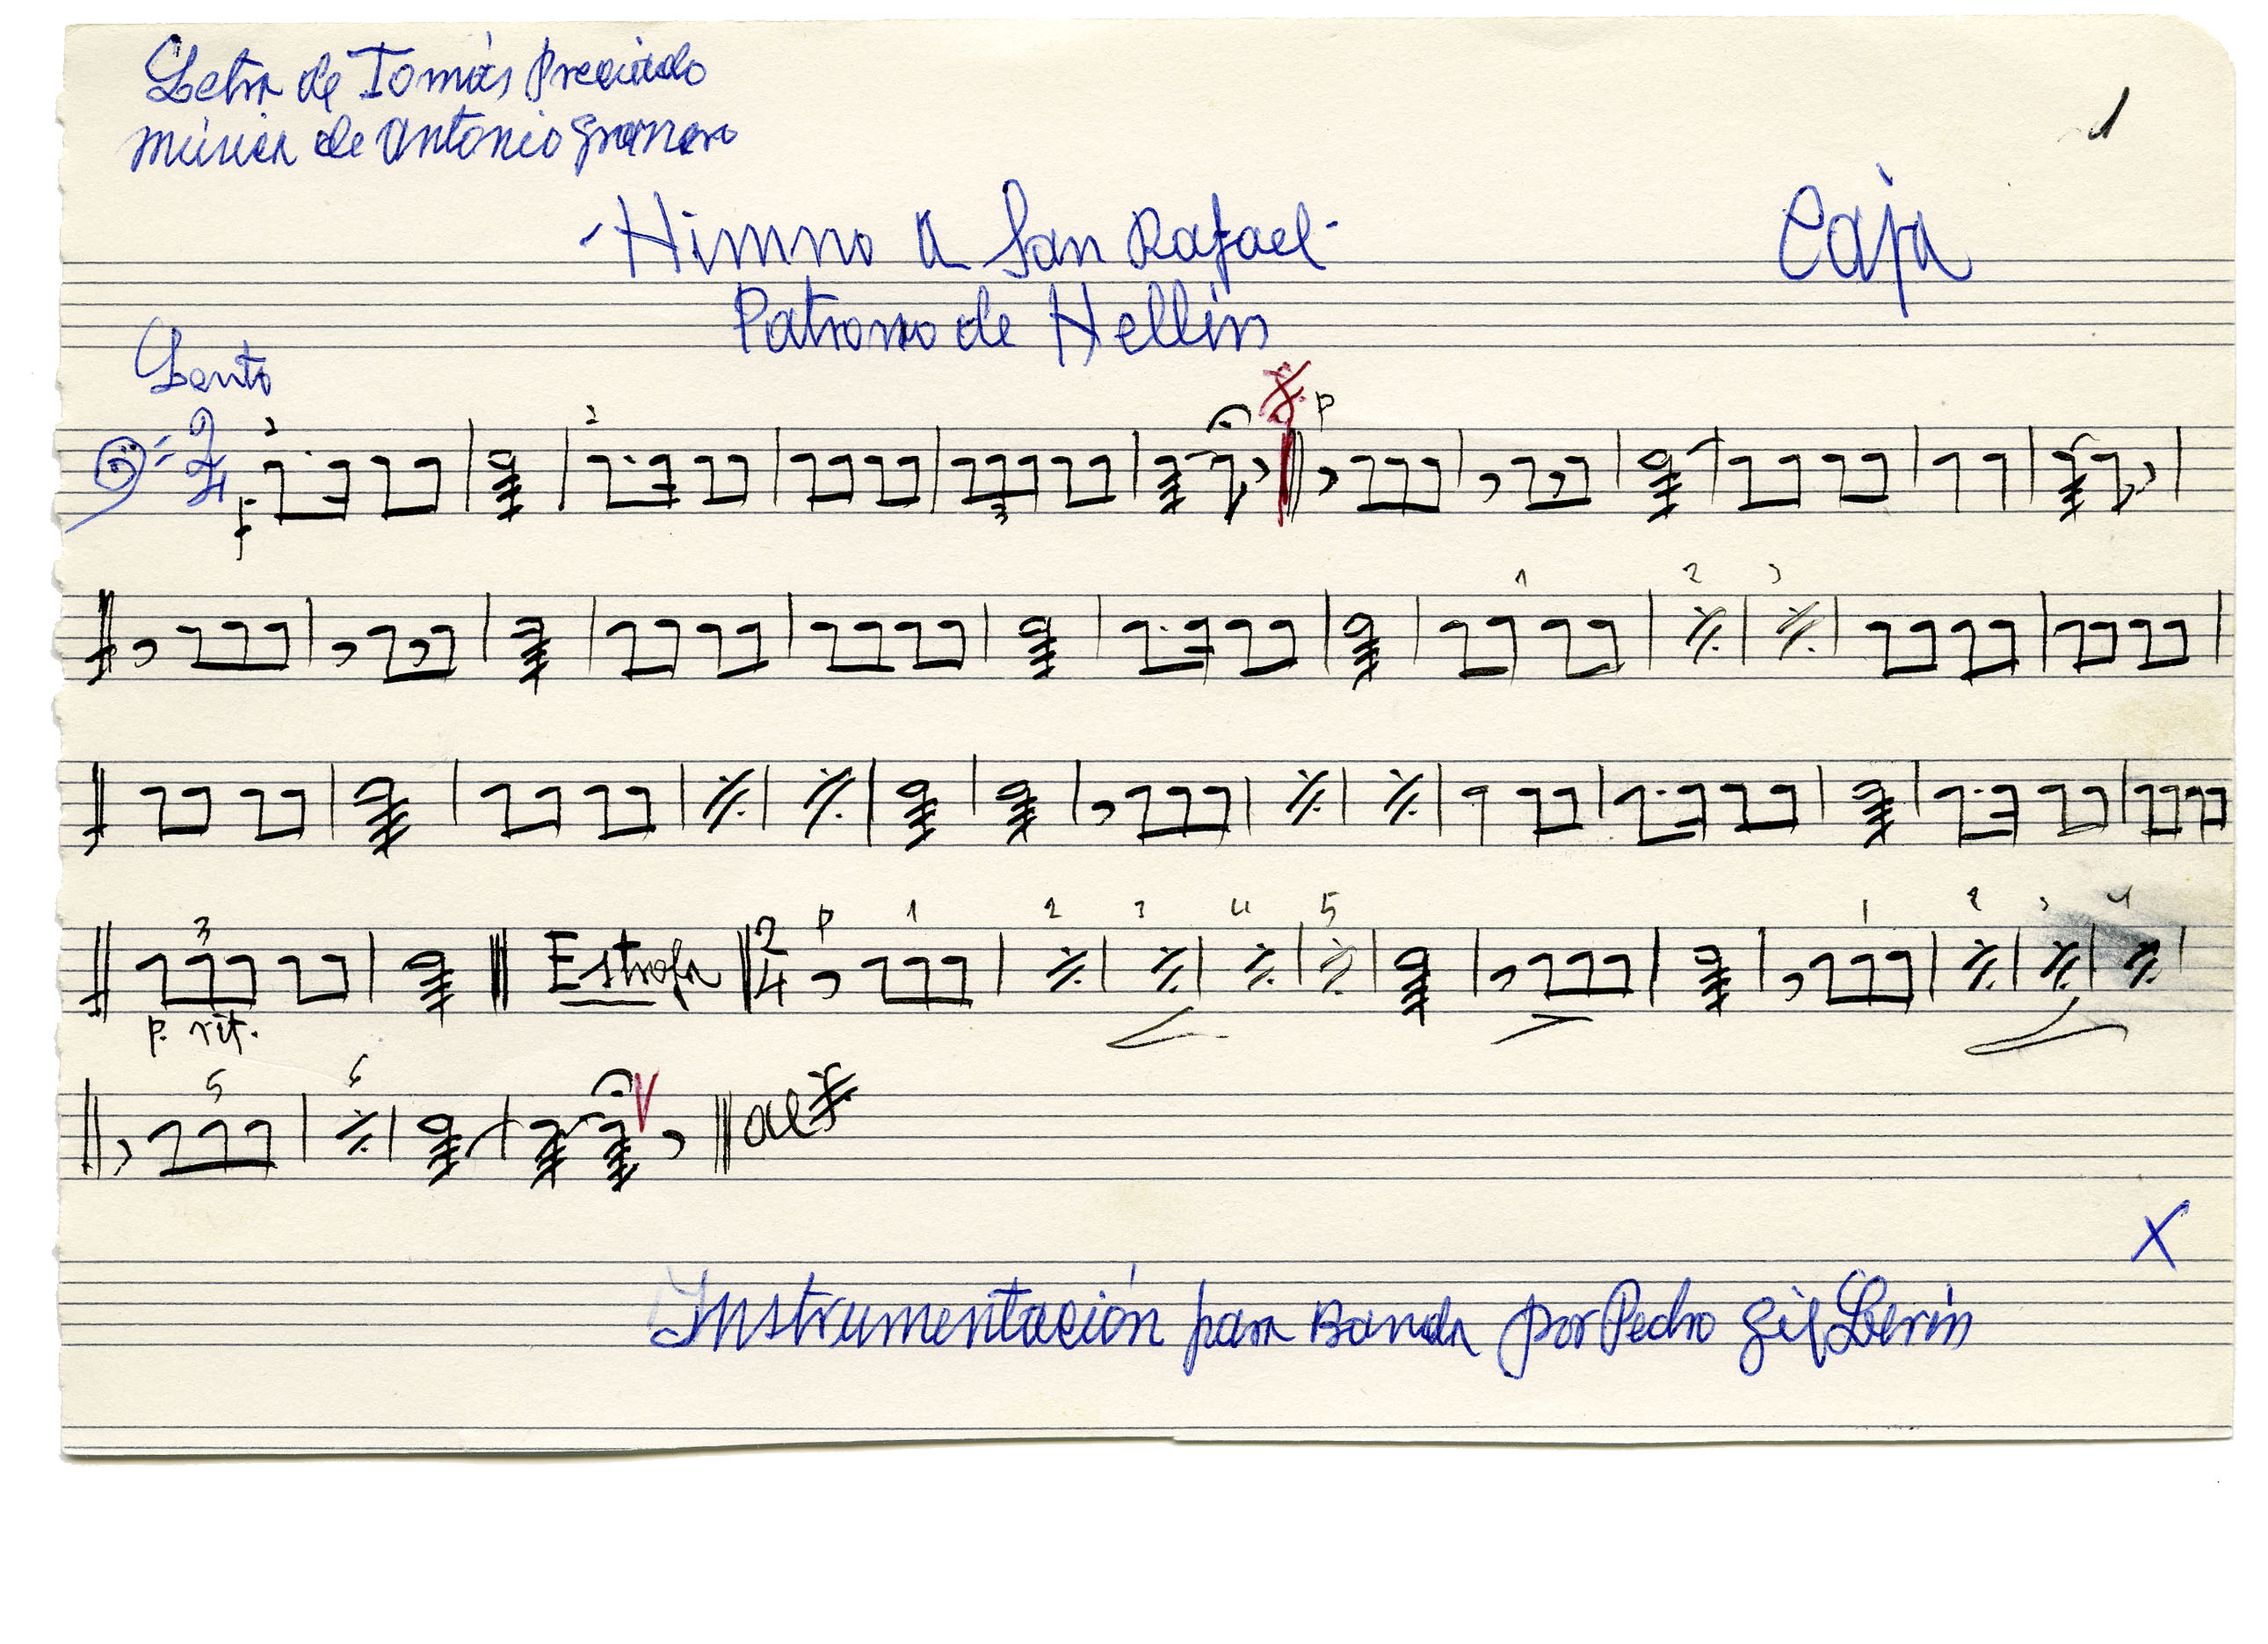 Letra de Tomás Preciado
Música de Antonio Granero
1
- Himno a San Rafael -
Caja
Patrono de Hellín
Lento
2 2 p
2/4
f 3
1 2 3
3 Estrofa 2/4 p 1 2 3 4 5 1 2 3 4
p. rit.
5 6
al
X
Instrumentación para Banda por Pedro Gil Lerín